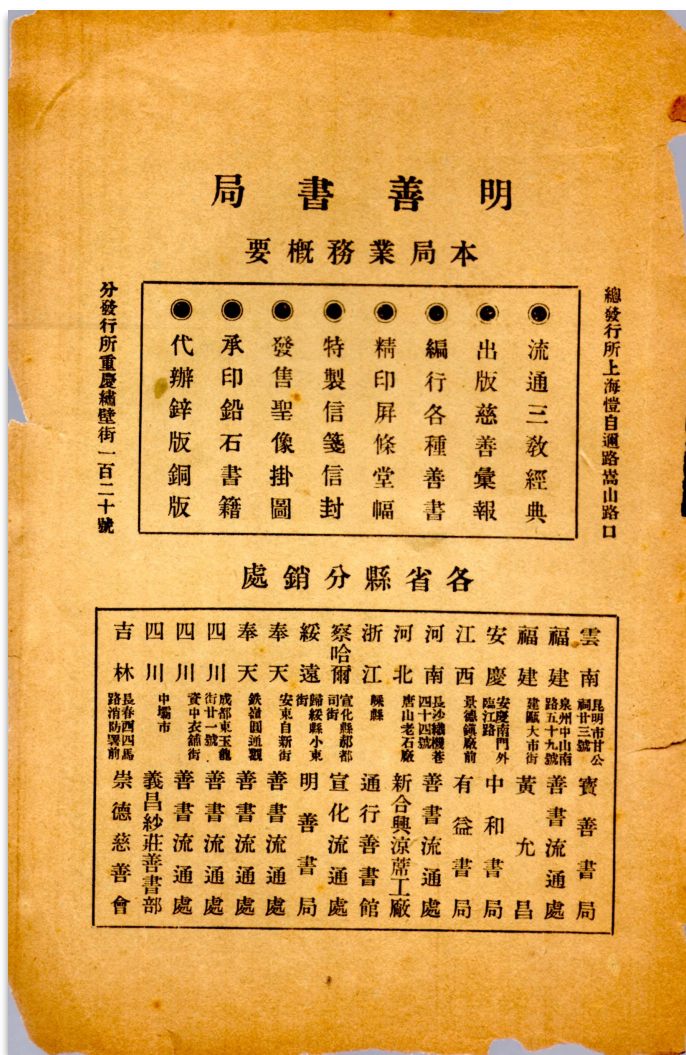 明善書局
本局業務概要
總發行所上海愷自邇路嵩山路口
◉流通三教經典
◉出版慈善彙報
◉編行各種善書
◉精印屏條堂幅
◉特製信箋信封
◉發售聖像掛圖
◉承印鉛石書籍
◉代辦鋅版銅版
分發行所重慶繡壁街一百二十號
各省縣分銷處
雲南 昆明市甘公祠廿三號 寶善書局
福建 泉州中山南路五十九號 善書流通處
福建 建甌大市街 黃允昌
安慶 安慶南門外臨江路 中和書局
江西 景德鎮廠前 有益書局
河南 長沙織機巷四十四號 善書流通處
河北 唐山老石廠 新合興涼蓆工廠
浙江 嵊縣 通行善書館
察哈爾 宣化縣郝都司街 宣化流通處
綏遠 歸綏縣小東街 明善書局
奉天 安東自新街 善書流通處
奉天 鉄嶺圓通觀 善書流通處
四川 成都東玉龍街廿一號 善書流通處
四川 資中衣舖街 善書流通處
四川 中壩市 義昌紗莊善書部
吉林 長春西四馬路消防署前 崇德慈善會